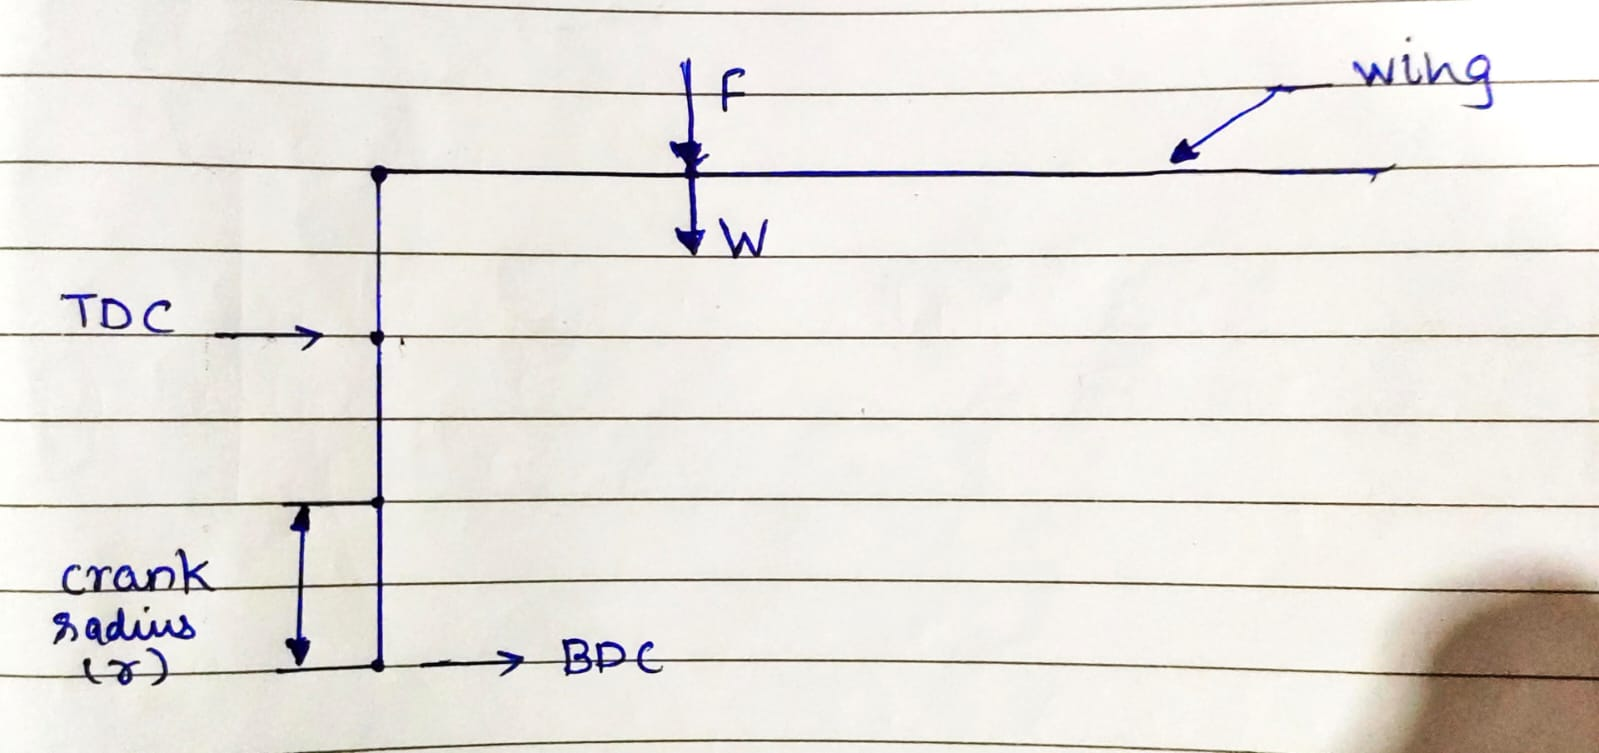 F
wing
W
TDC
crank
radius
(r)
BDC